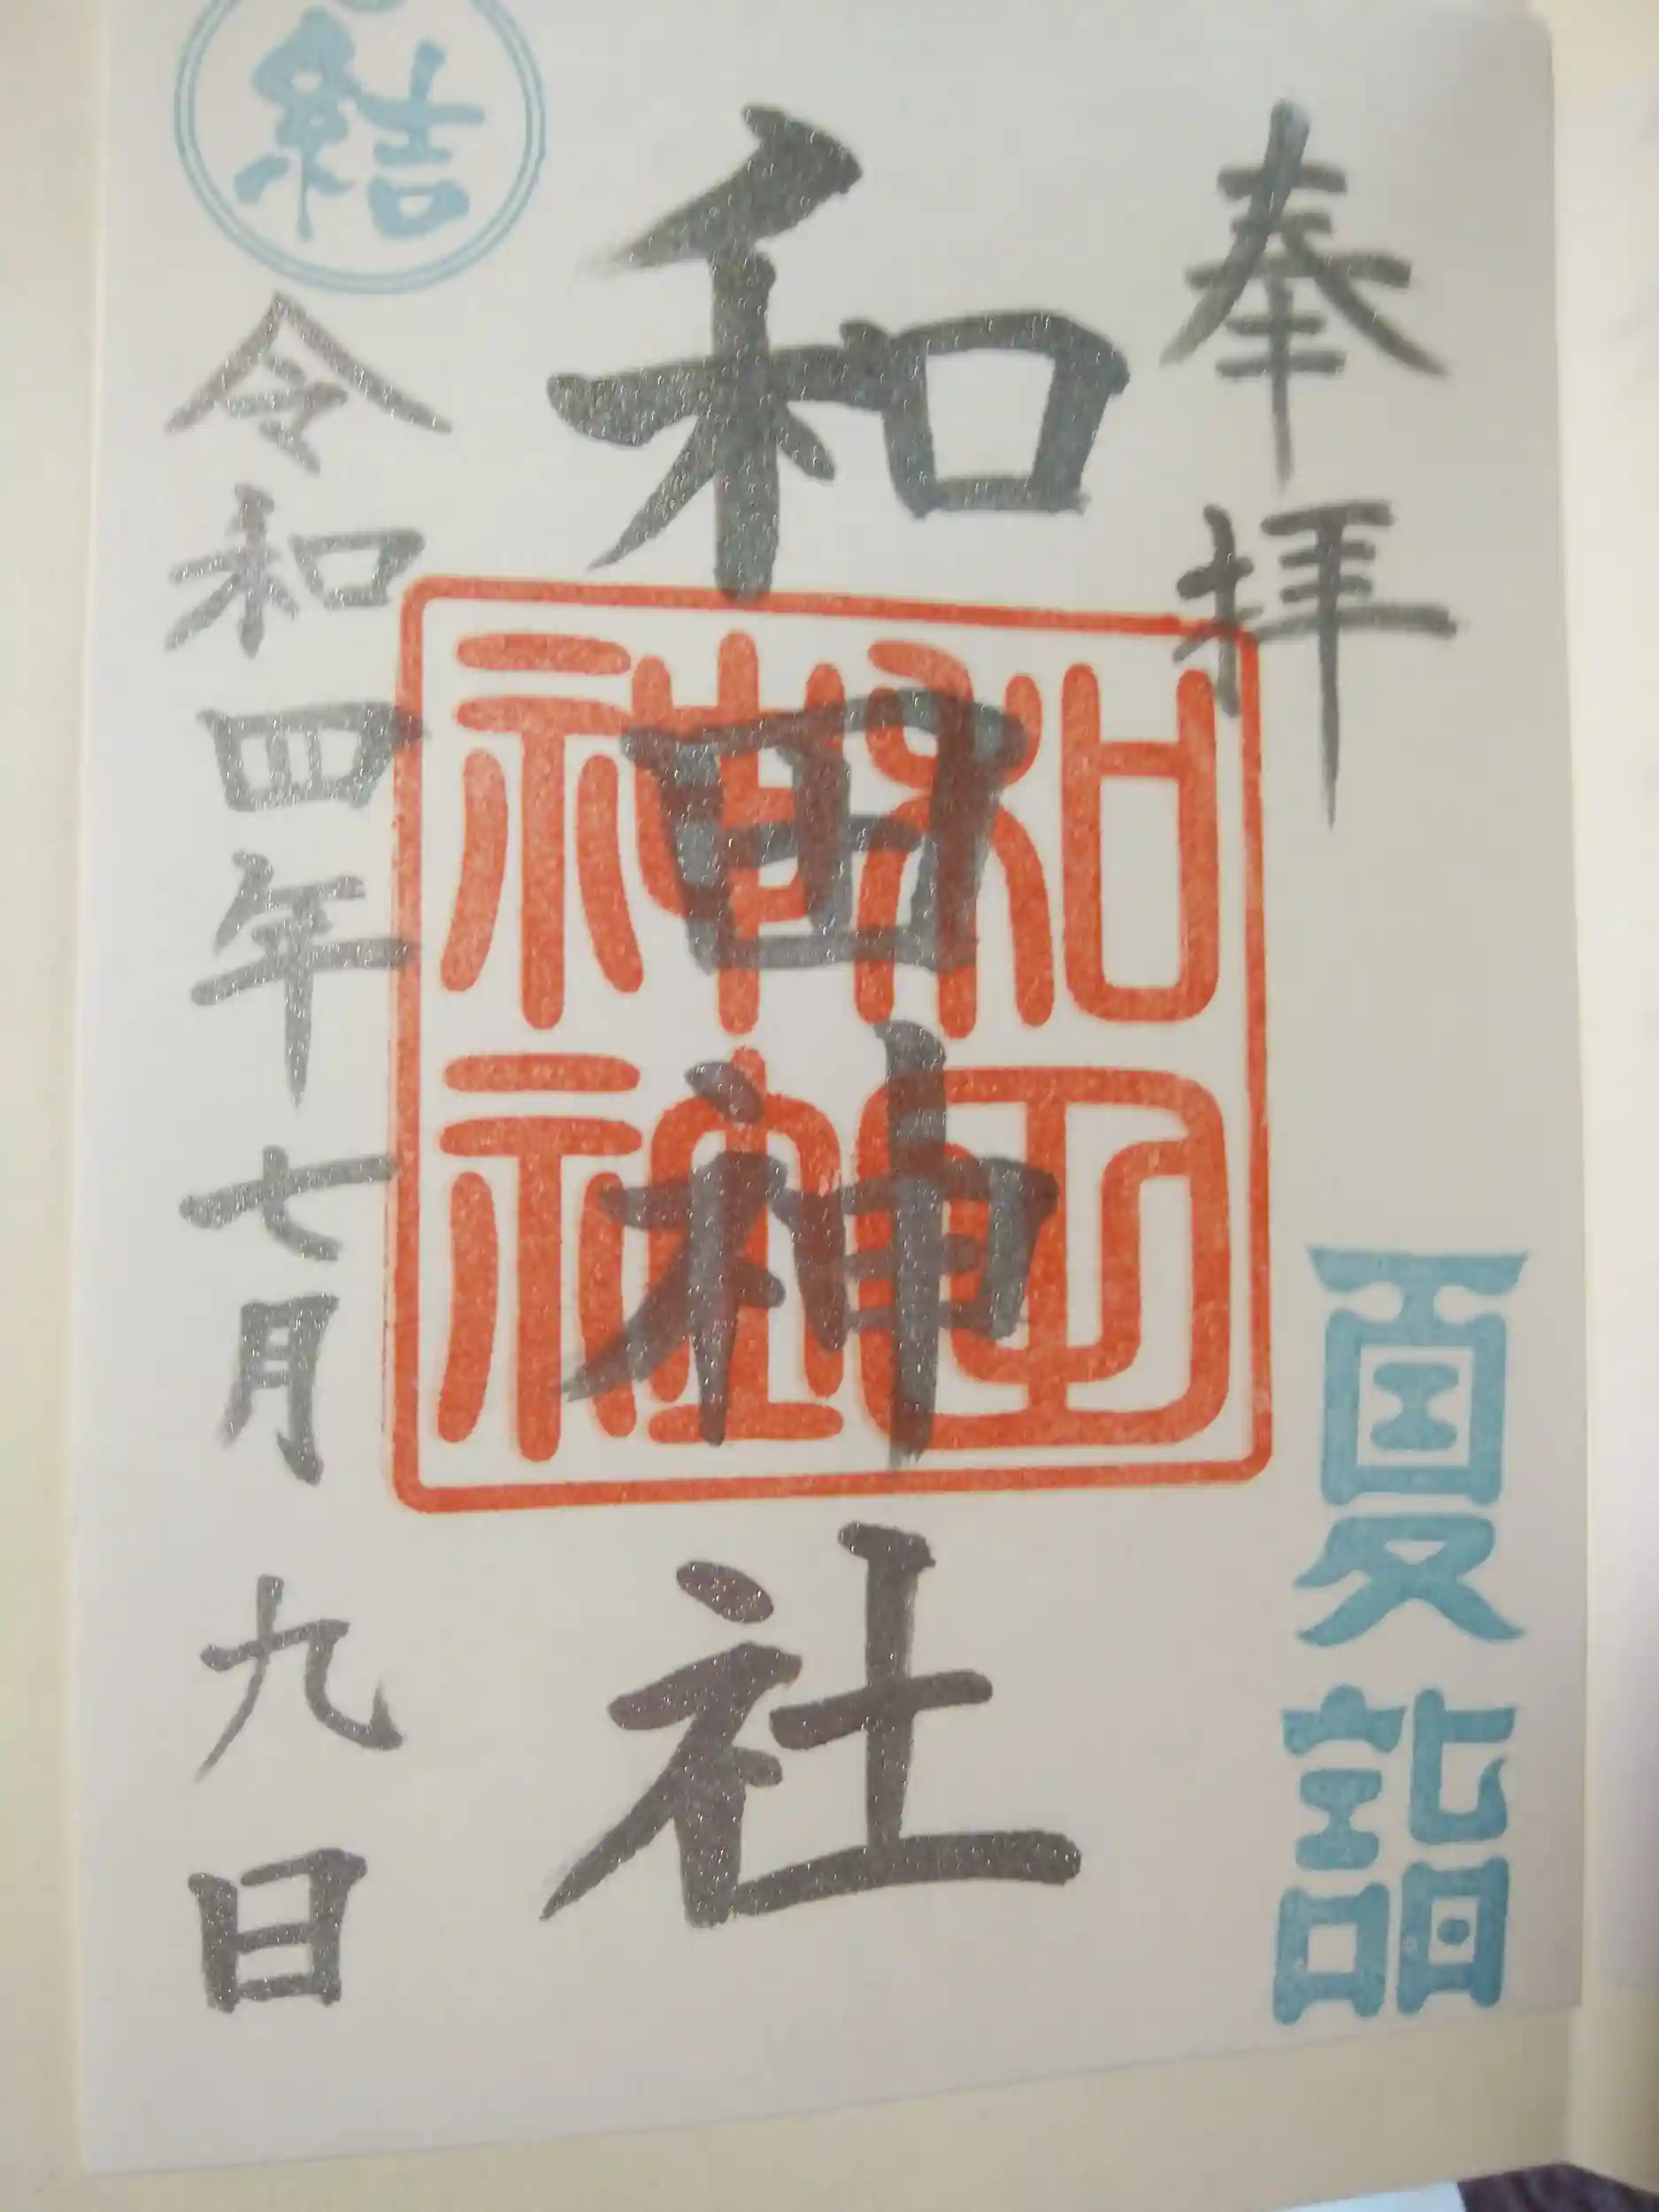 奉拝
夏詣
和田神社
和田神社
結
令和四年七月九日